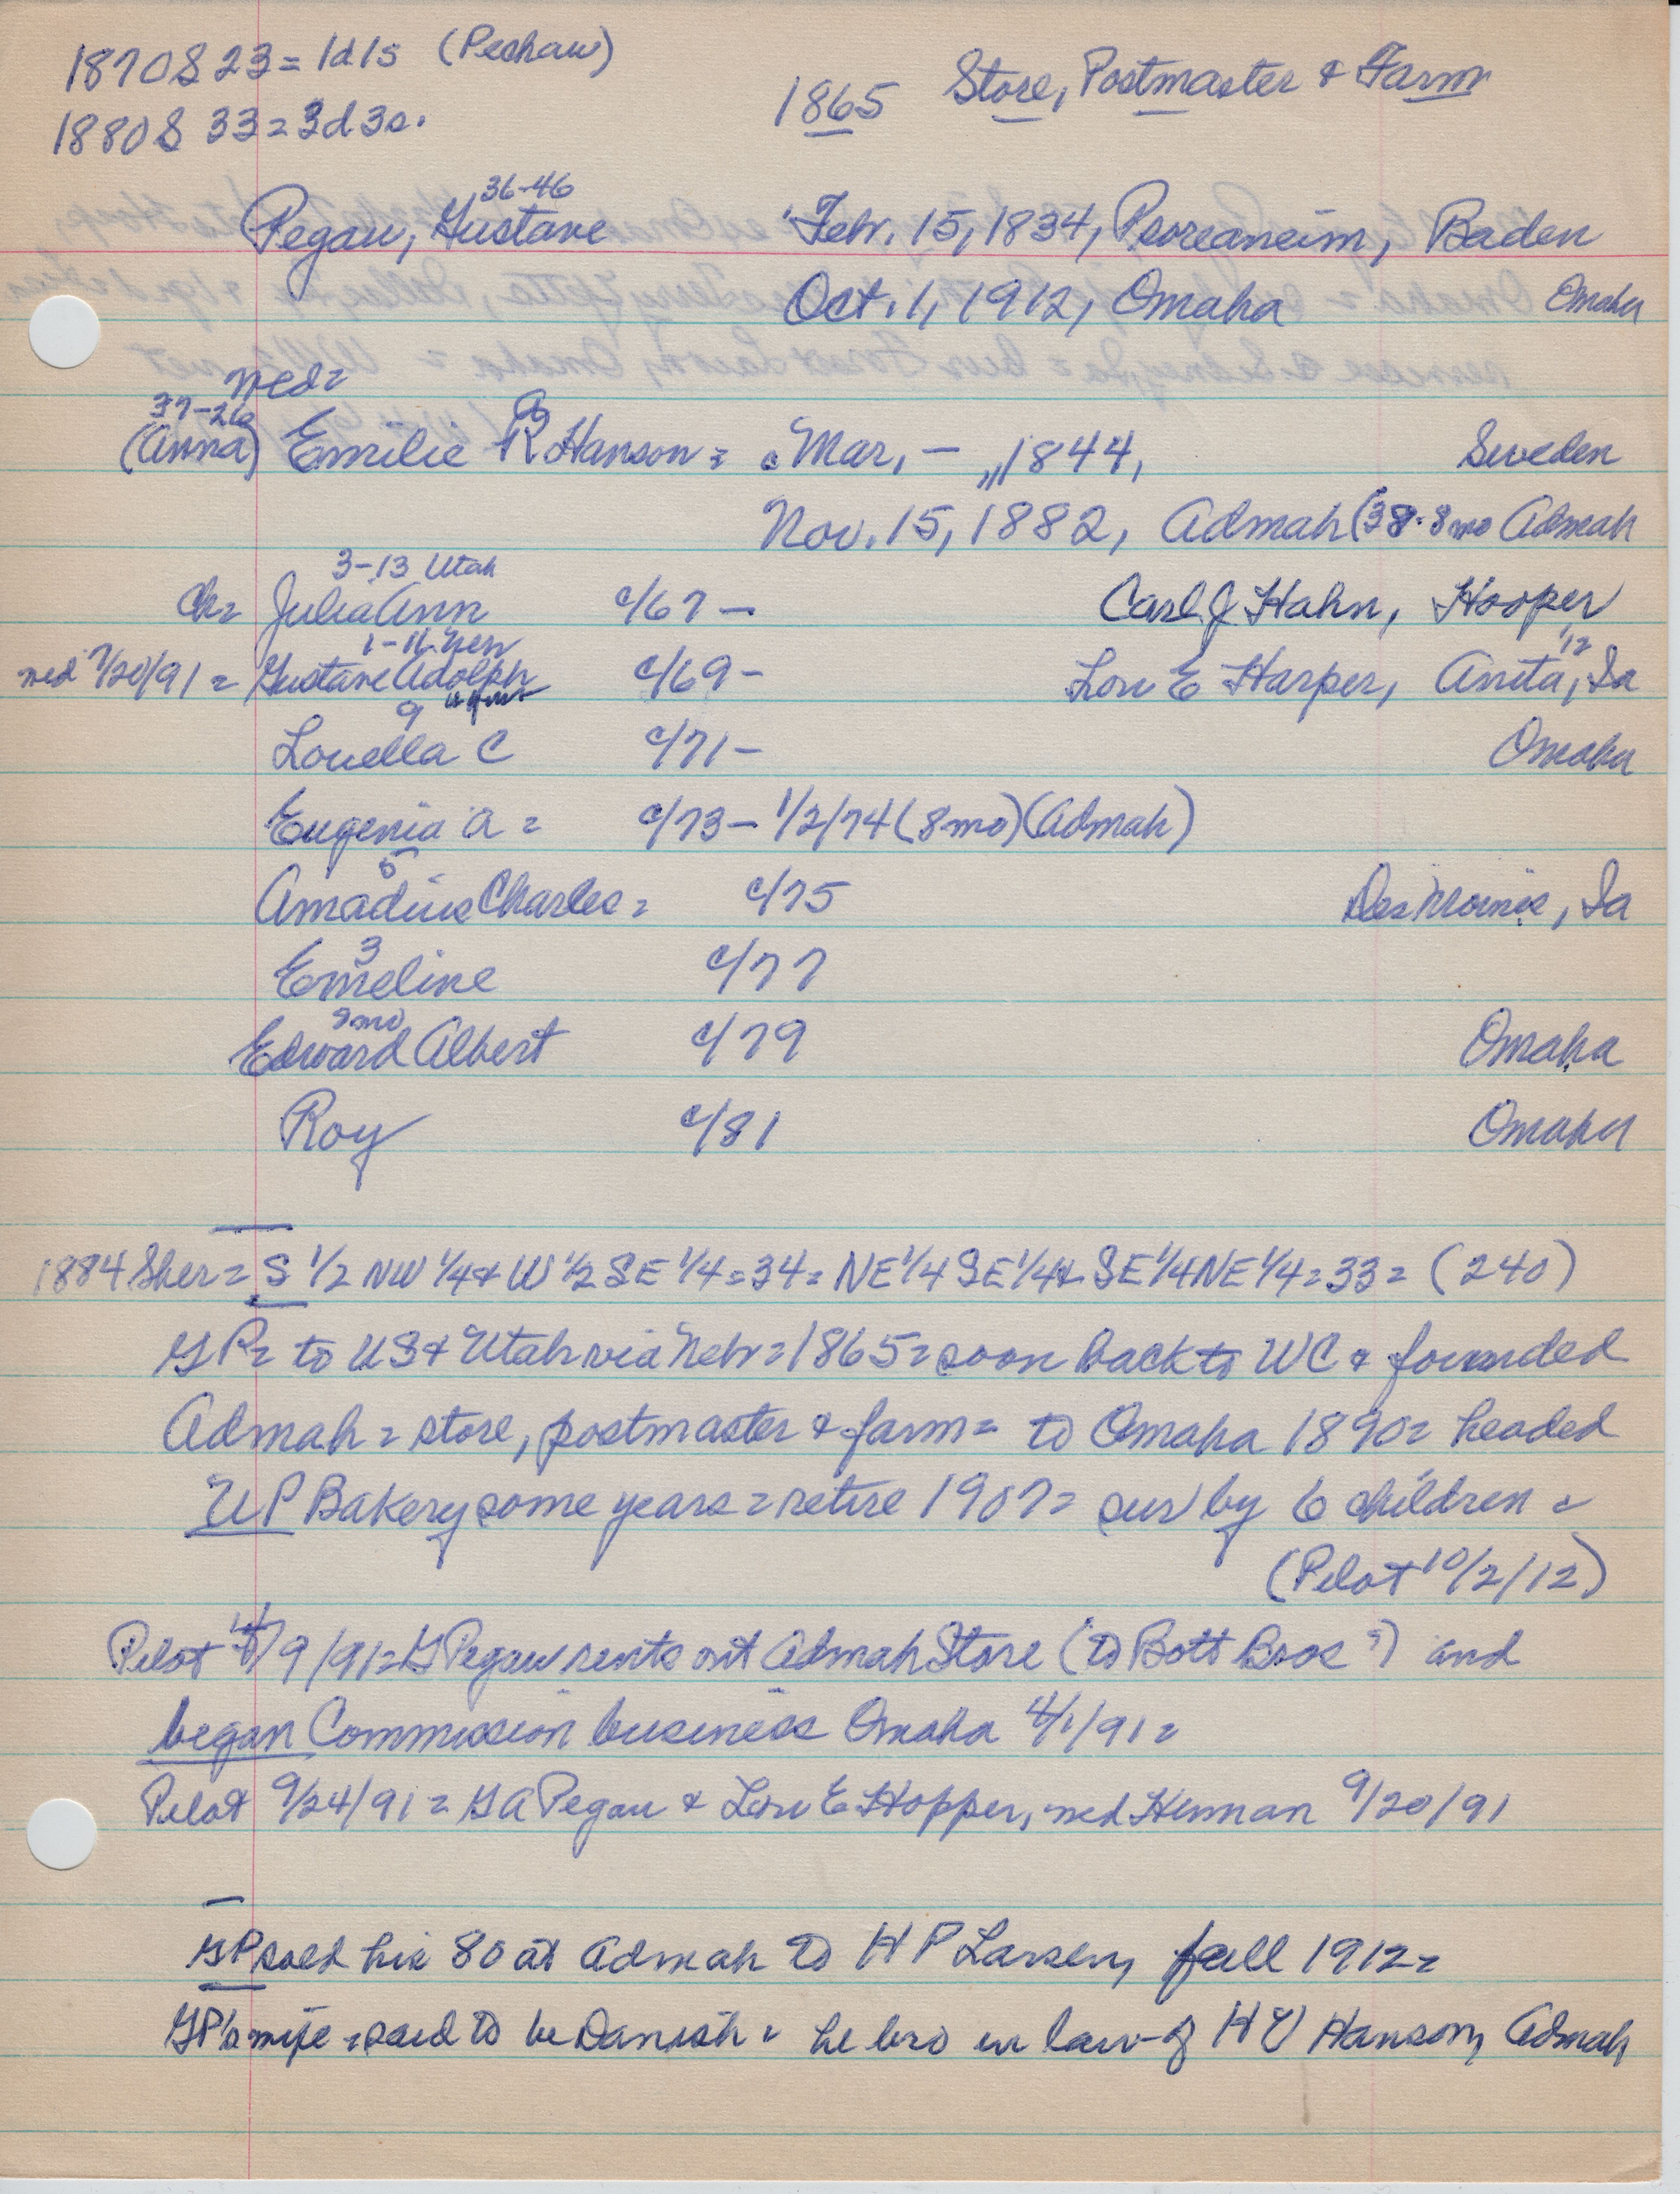 1870S 23 = 1d1s (Peshaw)
1880S 33 = 3d3s.
1865 Store, Postmaster & Farm
36-46
Pegau, Gustave Febr. 15, 1834, Baden
Oct. 1, 1912, Omaha Omaha
med =
37-26
(Anna) Emilie R Hanson = Mar, - ,, 1844, Sweden
Nov. 15, 1882, Admah (38-8mo Admah
3-13 Utah
Ch = Julia Ann c/67 - Carl J Hahn, Hooper
1-11 Nen
med 9/20/91 = Gustave Adolph c/69 - Lou E Harper, Anita, Ia
9
Louella C c/71 - Omaha
Eugenia A = c/73 - 1/2/74 (8mo) (Admah)
5
Amadius Charles = c/75 Des Moines, Ia
3
Emeline c/77
9mo
Edward Albert c/79 Omaha
Roy c/81 Omaha
1884 Sher = S 1/2 NW 1/4 & W 1/2 SE 1/4 = 34 = NE 1/4 SE 1/4 & SE 1/4 NE 1/4 = 33 = (240)
GP = to US & Utah via Nebr = 1865 = soon back to WC & founded
Admah = store, postmaster & farm = to Omaha 1890 = headed
UP Bakery some years = retire 1907 = sur by 6 children =
(Pilot 10/2/12)
Pilot 4/9/91 = G Pegau rents out Admah Store (to Bott Bros ?) and
began Commission business Omaha 4/1/91 =
Pilot 9/24/91 = G A Pegau & Lou E Hopper, med Herman 9/20/91
GP sold his 80 at Admah to H P Larsen, fall 1912 =
GP's wife = said to be Danish = he bro in law of H V Hanson, Admah